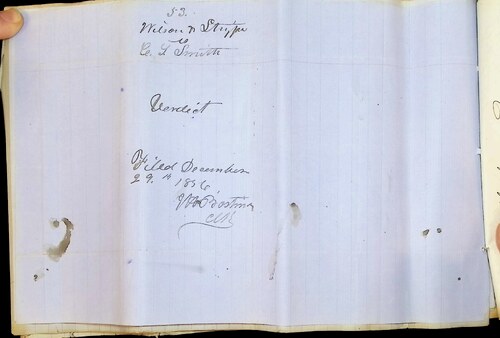 53.
Wilson & Stripe
vs
C. L. Smith
Verdict
Filed December
29th 1856
Wm Prostman
Clk